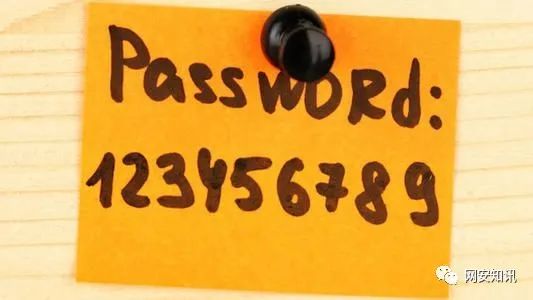 Password:
123456789
网安知讯